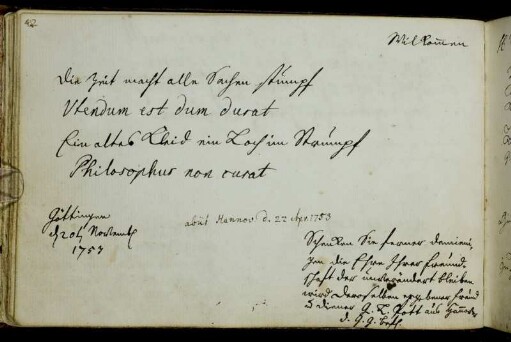 42
Wilkom̅en
Die Zeit macht alle Sachen stumpf
Utendum est dum durat
Ein altes Kleid ein Loch im Strumpf
Philosophus non curat
Göttingen
d. 20t Novemb
1753
abiit Hannov d. 22 Apr. 1753
Schenken Sie ferner demjeni,
gen die Ehre Ihrer Freund,
schaft der unverändert bleiben
wird Deroselben ergebener Freund
diener aus
d. G. G.